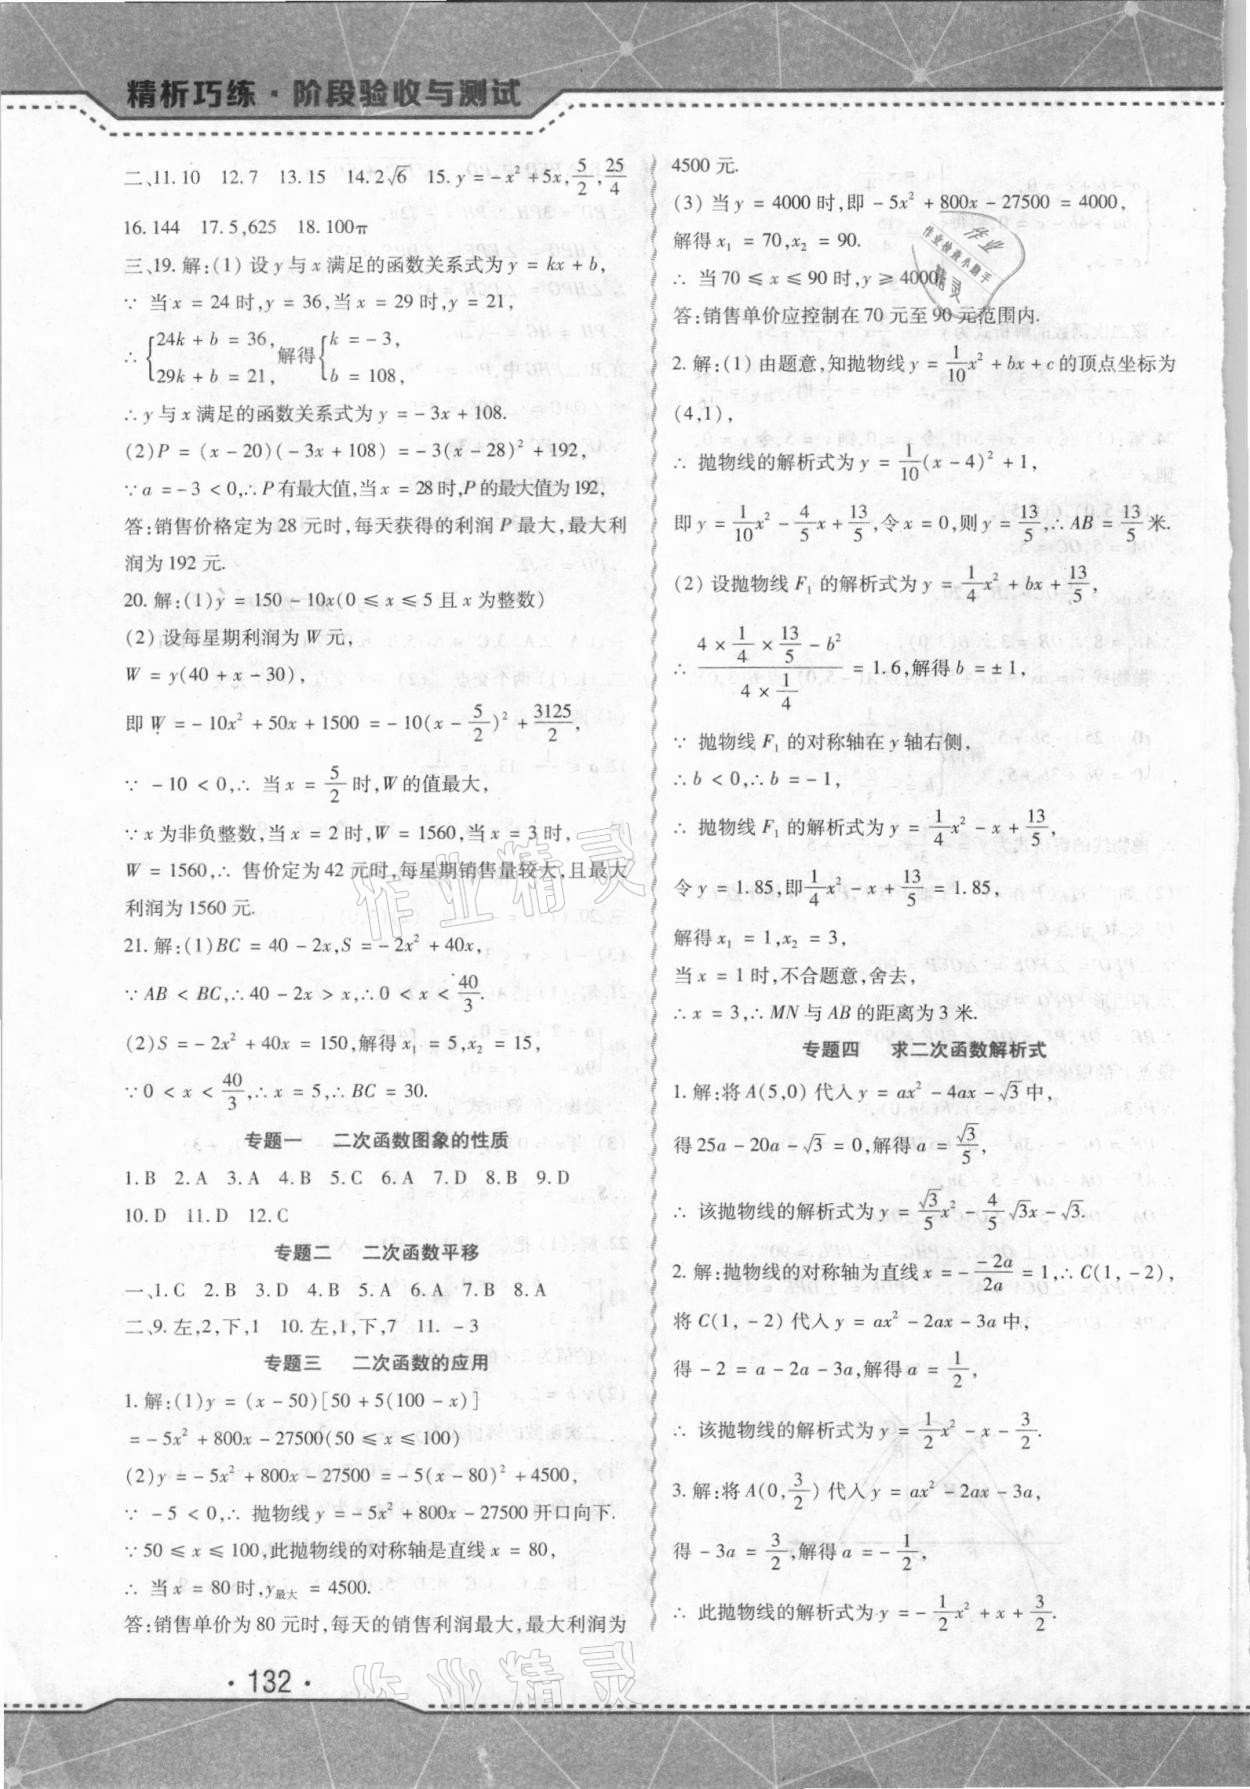 精析巧练·阶段验收与测试
二、11. 10　12. 7　13. 15　14. 2√6　15. y=-x²+5x, 5/2, 25/4
16. 144　17. 5,625　18. 100π
三、19. 解:(1) 设 y 与 x 满足的函数关系式为 y = kx + b,
∵ 当 x = 24 时, y = 36, 当 x = 29 时, y = 21,
∴ {24k + b = 36, 29k + b = 21, 解得 {k = -3, b = 108,
∴ y 与 x 满足的函数关系式为 y = -3x + 108.
(2) P = (x-20)(-3x+108) = -3(x-28)²+192,
∵ a = -3 < 0, ∴ P 有最大值, 当 x = 28 时, P 的最大值为 192,
答:销售价格定为 28 元时,每天获得的利润 P 最大,最大利
润为 192 元.
20. 解:(1) y = 150 - 10x(0 ≤ x ≤ 5 且 x 为整数)
(2) 设每星期利润为 W 元,
W = y(40 + x - 30),
即 W = -10x² + 50x + 1500 = -10(x - 5/2)² + 3125/2,
∵ -10 < 0, ∴ 当 x = 5/2 时, W 的值最大,
∵ x 为非负整数, 当 x = 2 时, W = 1560, 当 x = 3 时,
W = 1560, ∴ 售价定为 42 元时, 每星期销售量较大, 且最大
利润为 1560 元.
21. 解:(1) BC = 40 - 2x, S = -2x² + 40x,
∵ AB < BC, ∴ 40 - 2x > x, ∴ 0 < x < 40/3.
(2) S = -2x² + 40x = 150, 解得 x₁ = 5, x₂ = 15,
∵ 0 < x < 40/3, ∴ x = 5, ∴ BC = 30.
专题一　二次函数图象的性质
1. B　2. A　3. A　4. B　5. C　6. A　7. D　8. B　9. D
10. D　11. D　12. C
专题二　二次函数平移
一、1. C　2. B　3. D　4. B　5. A　6. A　7. B　8. A
二、9. 左,2,下,1　10. 左,1,下,7　11. -3
专题三　二次函数的应用
1. 解:(1) y = (x-50)[50+5(100-x)]
= -5x² + 800x - 27500(50 ≤ x ≤ 100)
(2) y = -5x² + 800x - 27500 = -5(x-80)² + 4500,
∵ -5 < 0, ∴ 抛物线 y = -5x² + 800x - 27500 开口向下.
∵ 50 ≤ x ≤ 100, 此抛物线的对称轴是直线 x = 80,
∴ 当 x = 80 时, y最大 = 4500.
答:销售单价为 80 元时,每天的销售利润最大,最大利润为
4500 元.
(3) 当 y = 4000 时, 即 -5x² + 800x - 27500 = 4000,
解得 x₁ = 70, x₂ = 90.
∴ 当 70 ≤ x ≤ 90 时, y ≥ 4000,
答:销售单价应控制在 70 元至 90 元范围内.
2. 解:(1) 由题意, 知抛物线 y = 1/10x² + bx + c 的顶点坐标为
(4,1),
∴ 抛物线的解析式为 y = 1/10(x-4)² + 1,
即 y = 1/10x² - 4/5x + 13/5, 令 x = 0, 则 y = 13/5, ∴ AB = 13/5 米.
(2) 设抛物线 F₁ 的解析式为 y = 1/4x² + bx + 13/5,
∴ (4 × 1/4 × 13/5 - b²)/(4 × 1/4) = 1.6, 解得 b = ±1,
∵ 抛物线 F₁ 的对称轴在 y 轴右侧,
∴ b < 0, ∴ b = -1,
∴ 抛物线 F₁ 的解析式为 y = 1/4x² - x + 13/5,
令 y = 1.85, 即 1/4x² - x + 13/5 = 1.85,
解得 x₁ = 1, x₂ = 3,
当 x = 1 时, 不合题意, 舍去,
∴ x = 3, ∴ MN 与 AB 的距离为 3 米.
专题四　求二次函数解析式
1. 解:将 A(5,0) 代入 y = ax² - 4ax - √3 中,
得 25a - 20a - √3 = 0, 解得 a = √3/5,
∴ 该抛物线的解析式为 y = √3/5x² - 4/5√3x - √3.
2. 解:抛物线的对称轴为直线 x = - -2a/2a = 1, ∴ C(1, -2),
将 C(1, -2) 代入 y = ax² - 2ax - 3a 中,
得 -2 = a - 2a - 3a, 解得 a = 1/2,
∴ 该抛物线的解析式为 y = 1/2x² - x - 3/2.
3. 解:将 A(0, 3/2) 代入 y = ax² - 2ax - 3a,
得 -3a = 3/2, 解得 a = -1/2,
∴ 此抛物线的解析式为 y = -1/2x² + x + 3/2.
·132·
作业精灵
作业精灵
作业
作业检查小助手
精灵